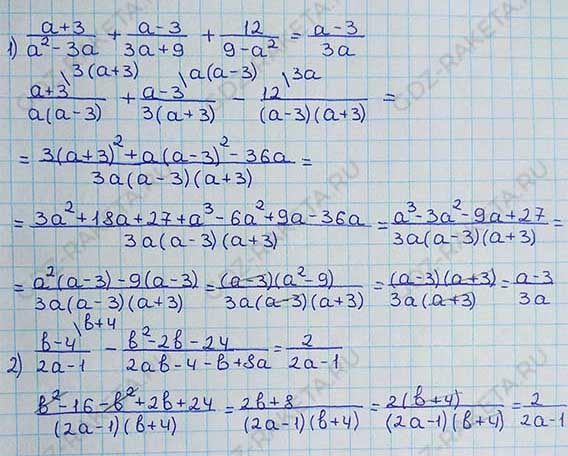 1) (a+3)/(a²-3a) + (a-3)/(3a+9) + 12/(9-a²) = (a-3)/(3a)
(a+3)\3(a+3)/(a(a-3)) + (a-3)\a(a-3)/(3(a+3)) - 12\3a/((a-3)(a+3)) =
= (3(a+3)²+a(a-3)²-36a)/(3a(a-3)(a+3)) =
= (3a²+18a+27+a³-6a²+9a-36a)/(3a(a-3)(a+3)) = (a³-3a²-9a+27)/(3a(a-3)(a+3)) =
= (a²(a-3)-9(a-3))/(3a(a-3)(a+3)) = ((a-3)(a²-9))/(3a(a-3)(a+3)) = ((a-3)(a+3))/(3a(a+3)) = (a-3)/(3a)
2) (b-4)\b+4/(2a-1) - (b²-2b-24)/(2ab-4-b+8a) = 2/(2a-1)
(b²-16-b²+2b+24)/((2a-1)(b+4)) = (2b+8)/((2a-1)(b+4)) = (2(b+4))/((2a-1)(b+4)) = 2/(2a-1)
GDZ-RAKETA.RU